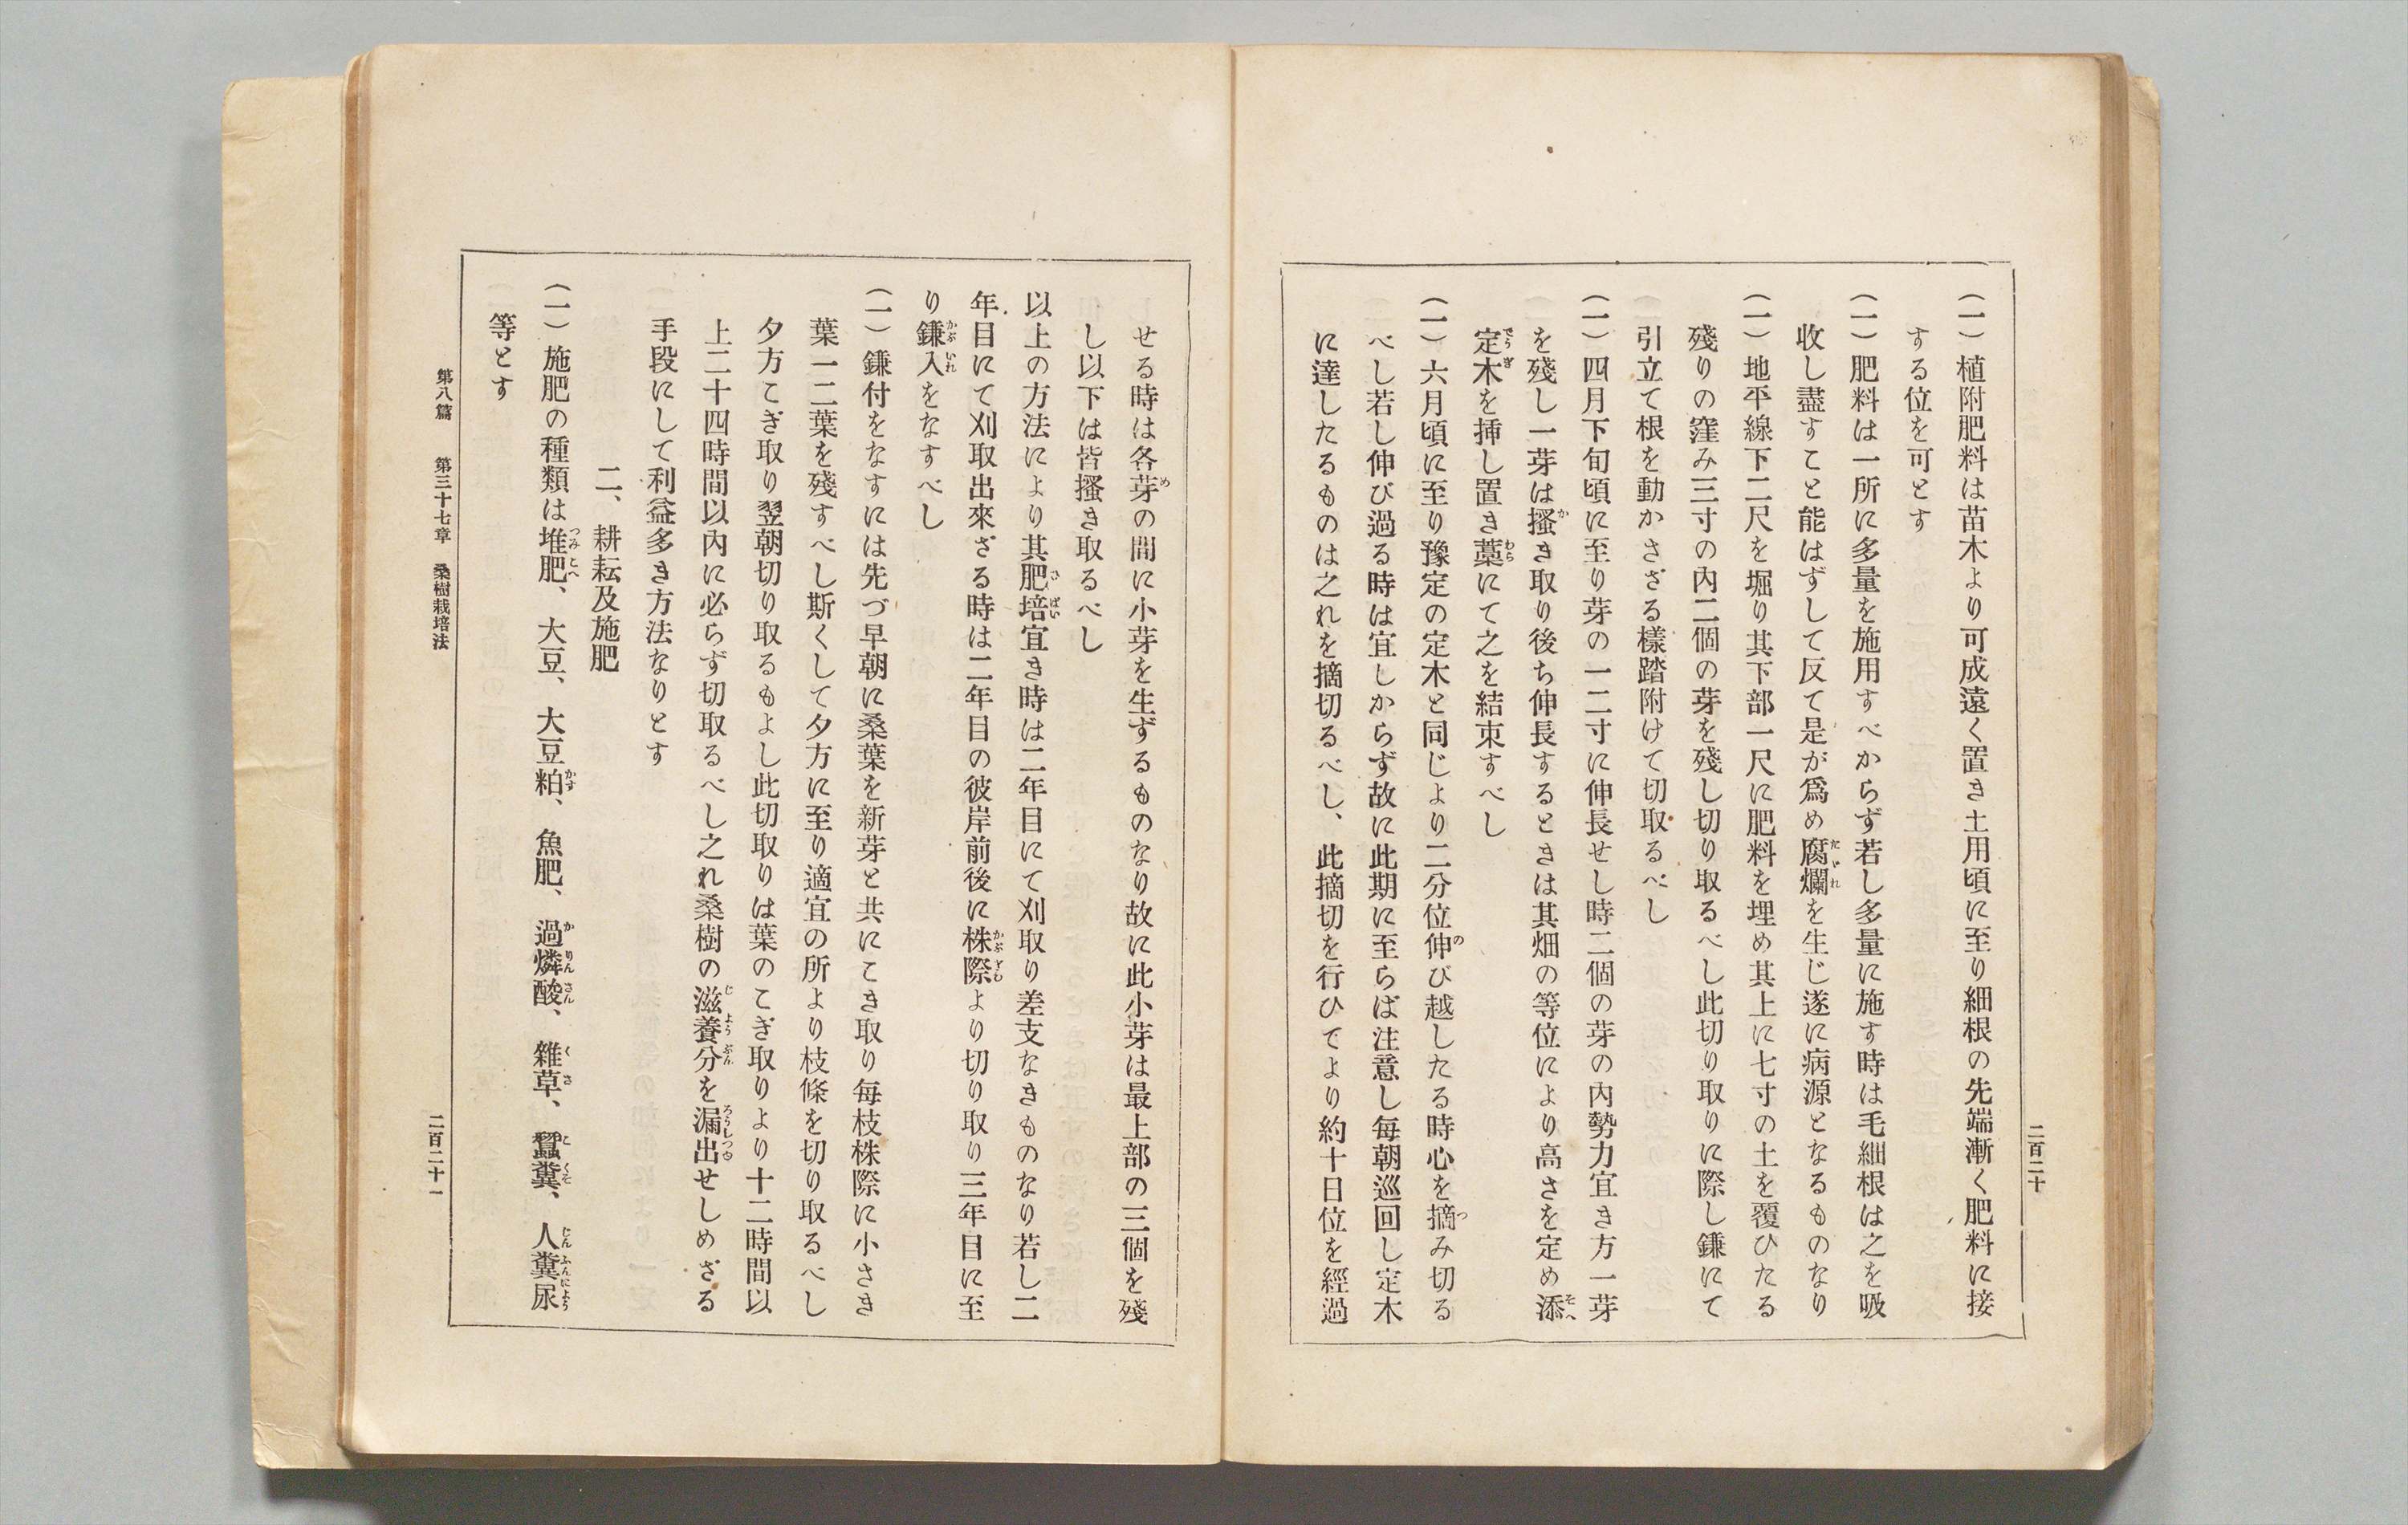 (一)植附肥料は苗木より可成遠く置き土用頃に至り細根の先端漸く肥料に接
する位を可とす
(一)肥料は一所に多量を施用すべからず若し多量に施す時は毛細根は之を吸
收し盡すこと能はずして反て是が爲め腐爛を生じ遂に病源となるものなり
(一)地平線下二尺を堀り其下部一尺に肥料を埋め其上に七寸の土を覆ひたる
殘りの窪み三寸の內二個の芽を殘し切り取るべし此切り取りに際し鎌にて
引立て根を動かさざる樣踏附けて切取るべし
(一)四月下旬頃に至り芽の一二寸に伸長せし時二個の芽の内勢力宜き方一芽
を殘し一芽は搔き取り後ち伸長するときは其畑の等位により高さを定め添
定木を揷し置き藁にて之を結束すべし
(一)六月頃に至り豫定の定木と同じより二分位伸び越したる時心を摘み切る
べし若し伸び過る時は宜しからず故に此期に至らば注意し每朝巡回し定木
に達したるものは之れを摘切るべし、此摘切を行ひてより約十日位を經過
二百二十
せる時は各芽の間に小芽を生ずるものなり故に此小芽は最上部の三個を殘
し以下は皆搔き取るべし
以上の方法により其肥培宜き時は二年目にて刈取り差支なきものなり若し二
年目にて刈取出來ざる時は二年目の彼岸前後に株際より切り取り三年目に至
り鎌入をなすべし
(一)鎌付をなすには先づ早朝に桑葉を新芽と共にこき取り每枝株際に小さき
葉一二葉を殘すべし斯くして夕方に至り適宜の所より枝條を切り取るべし
夕方こぎ取り翌朝切り取るもよし此切取りは葉のこぎ取りより十二時間以
上二十四時間以內に必らず切取るべし之れ桑樹の滋養分を漏出せしめざる
手段にして利益多き方法なりとす
二、耕耘及施肥
(一)施肥の種類は堆肥、大豆、大豆粕、魚肥、過燐酸、雜草、蠶糞、人糞尿
等とす
第八篇 第三十七章 桑樹栽培法
二百二十一